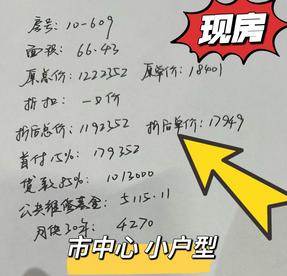 现房
房号: 10-609
面积: 66.43
原总价: 1222352 原单价: 18401
折扣: 一口价
折后总价: 1192352 折后单价: 17949
首付15%: 179352
贷款85%: 1013000
公共维修基金: 5115.11
月供30年: 4270
市中心 小户型